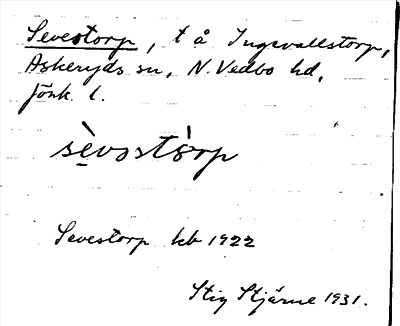 Sevestorp, t å Ingevallstorp,
Askeryds sn, N. Vedbo hd,
Jönk. l.
sèvostórp
Sevestorp kb 1922
Stig Stjärne 1931.